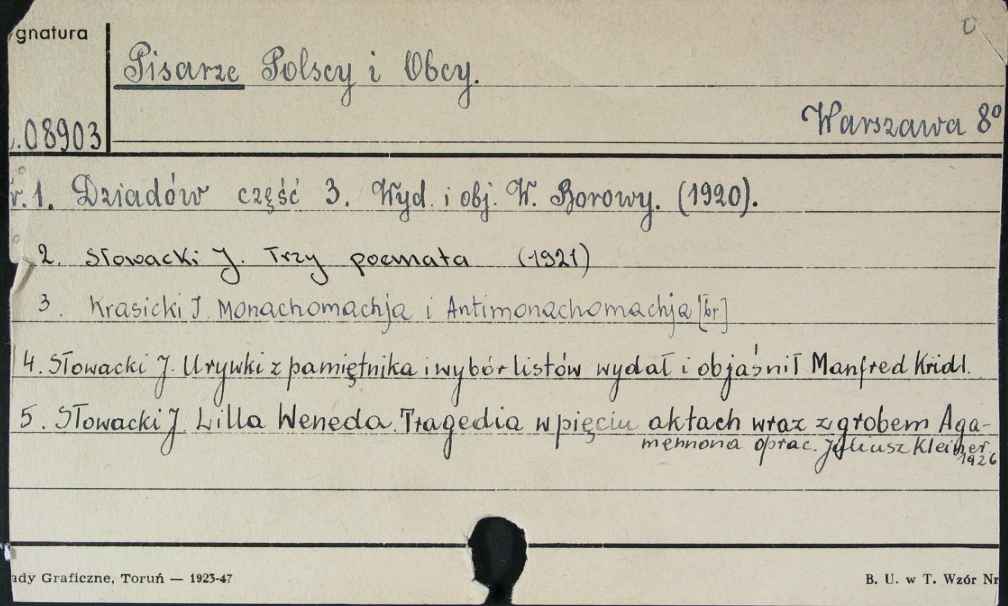 gnatura
Pisarze Polscy i Obcy.
.08903
Warszawa 8º
r. 1. Dziadów część 3. Wyd. i obj. W. Borowy. (1920).
2. Słowacki J. Trzy poemata (1921)
3. Krasicki I. Monachomachja i Antimonachomachja [br]
4. Słowacki J. Urywki z pamiętnika i wybór listów wydał i objaśnił Manfred Kridl.
5. Słowacki J. Lilla Weneda. Tragedia w pięciu aktach wraz z grobem Aga-
memnona oprac. Juliusz Kleiner.
1926
ady Graficzne, Toruń — 1923-47
B. U. w T. Wzór Nr